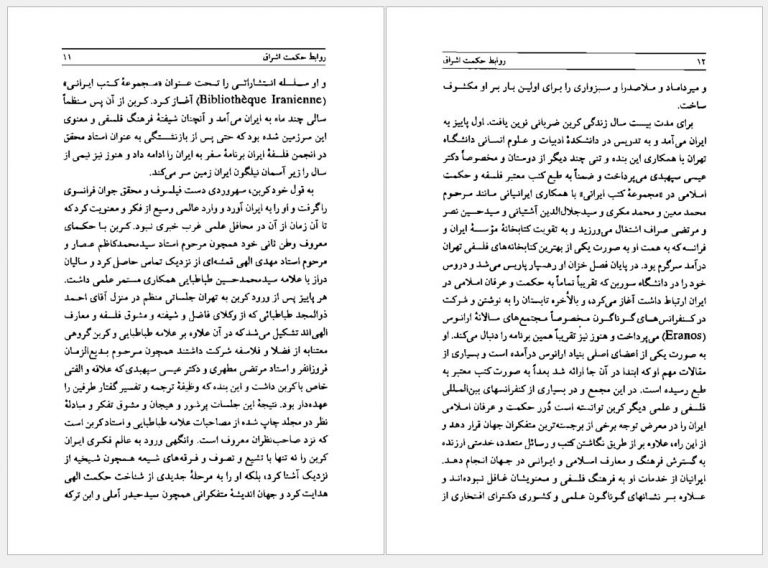 روابط حکمت اشراق ۱۱
و او سلسله انتشاراتی را تحت عنوان «مجموعهٔ کتب ایرانی»
(Bibliothèque Iranienne) آغاز کرد. کربن از آن پس منظماً
سالی چند ماه به ایران می‌آمد و آنچنان شیفتهٔ فرهنگ فلسفی و معنوی
این سرزمین شده بود که حتی پس از بازنشستگی به عنوان استاد محقق
در انجمن فلسفهٔ ایران برنامهٔ سفر به ایران را ادامه داد و هنوز نیز نیمی از
سال را زیر آسمان نیلگون ایران زمین سر می‌کند.
به قول خود کربن، سهروردی دست فیلسوف و محقق جوان فرانسوی
را گرفت و او را به ایران آورد و وارد عالمی وسیع از فکر و معنویت کرد که
تا آن زمان از آن در محافل علمی غرب خبری نبود. کربن با حکمای
معروف وطن ثانی خود همچون مرحوم استاد سیدمحمدکاظم عصار و
مرحوم استاد مهدی الهی قمشه‌ای از نزدیک تماس حاصل کرد و سالیان
دراز با علامه سیدمحمدحسین طباطبایی همکاری مستمر علمی داشت.
هر پاییز پس از ورود کربن به تهران جلساتی منظم در منزل آقای احمد
ذوالمجد طباطبائی که از وکلای فاضل و شیفته و مشوق فلسفه و معارف
الهی‌اند تشکیل می‌شد که در آن علاوه بر علامه طباطبایی و کربن گروهی
معتنابه از فضلا و فلاسفه شرکت داشتند همچون مرحوم بدیع‌الزمان
فروزانفر و استاد مرتضی مطهری و دکتر عیسی سپهبدی که علاقه و الفتی
خاص با کربن داشت و این بنده که وظیفهٔ ترجمه و تفسیر گفتار طرفین را
عهده‌دار بود. نتیجهٔ این جلسات پرشور و هیجان و مشوق تفکر و مبادلهٔ
نظر دو مجلد چاپ شده از مصاحبات علامه طباطبایی و استاد کربن است
که نزد صاحب‌نظران معروف است. وانگهی ورود به عالم فکری ایران
کربن را نه تنها با تشیع و تصوف و فرقه‌های شیعه همچون شیخیه از
نزدیک آشنا کرد، بلکه او را به مرحلهٔ جدیدی از شناخت حکمت الهی
هدایت کرد و جهان اندیشهٔ متفکرانی همچون سیدحیدر آملی و ابن ترکه
۱۲ روابط حکمت اشراق
و میرداماد و ملاصدرا و سبزواری را برای اولین بار بر او مکشوف
ساخت.
برای مدت بیست سال زندگی کربن ضربانی نوین یافت. اول پاییز به
ایران می‌آمد و به تدریس در دانشکدهٔ ادبیات و علوم انسانی دانشگاه
تهران با همکاری این بنده و تنی چند دیگر از دوستان و مخصوصاً دکتر
عیسی سپهبدی می‌پرداخت و ضمناً به طبع کتب معتبر فلسفه و حکمت
اسلامی در «مجموعهٔ کتب ایرانی» با همکاری ایرانیانی مانند مرحوم
محمد معین و محمد مکری و سیدجلال‌الدین آشتیانی و سیدحسین نصر
و مرتضی صراف اشتغال می‌ورزید و به تقویت کتابخانهٔ مؤسسهٔ ایران و
فرانسه که به همت او به صورت یکی از بهترین کتابخانه‌های فلسفی تهران
درآمد سرگرم بود. در پایان فصل خزان او رهسپار پاریس می‌شد و دروس
خود را در دانشگاه سوربن که تقریباً تماماً به حکمت و عرفان اسلامی در
ایران ارتباط داشت آغاز می‌کرد، و بالأخره تابستان را به نوشتن و شرکت
در کنفرانس‌های گوناگون مخصوصاً مجتمع‌های سالانهٔ ارانوس
(Eranos) می‌پرداخت و هنوز نیز تقریباً همین برنامه را دنبال می‌کند. او
به صورت یکی از اعضای اصلی بنیاد ارانوس درآمده است و بسیاری از
مقالات مهم او که ابتدا در آن جا ارائه شد بعداً به صورت کتب معتبر به
طبع رسیده است. در این مجمع و در بسیاری از کنفرانسهای بین‌المللی
فلسفی و علمی دیگر کربن توانسته است دُرر حکمت و عرفان اسلامی
ایران را در معرض توجه برخی از برجسته‌ترین متفکران جهان قرار دهد و
از این راه، علاوه بر از طریق نگاشتن کتب و رسائل متعدد، خدمتی ارزنده
به گسترش فرهنگ و معارف اسلامی و ایرانی در جهان انجام دهد.
ایرانیان از خدمات او به فرهنگ فلسفی و معنویشان غافل نبوده‌اند و
علاوه بر نشانهای گوناگون علمی و کشوری دکترای افتخاری از